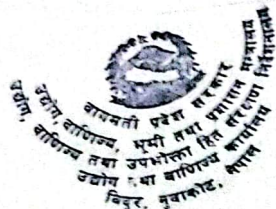 बागमती प्रदेश सरकार
उद्योग, वाणिज्य, भूमी तथा प्रशासन मन्त्रालय
उद्योग, वाणिज्य तथा उपभोक्ता हित संरक्षण निर्देशनालय
उद्योग तथा वाणिज्य कार्यालय
विदुर, नुवाकोट, नेपाल